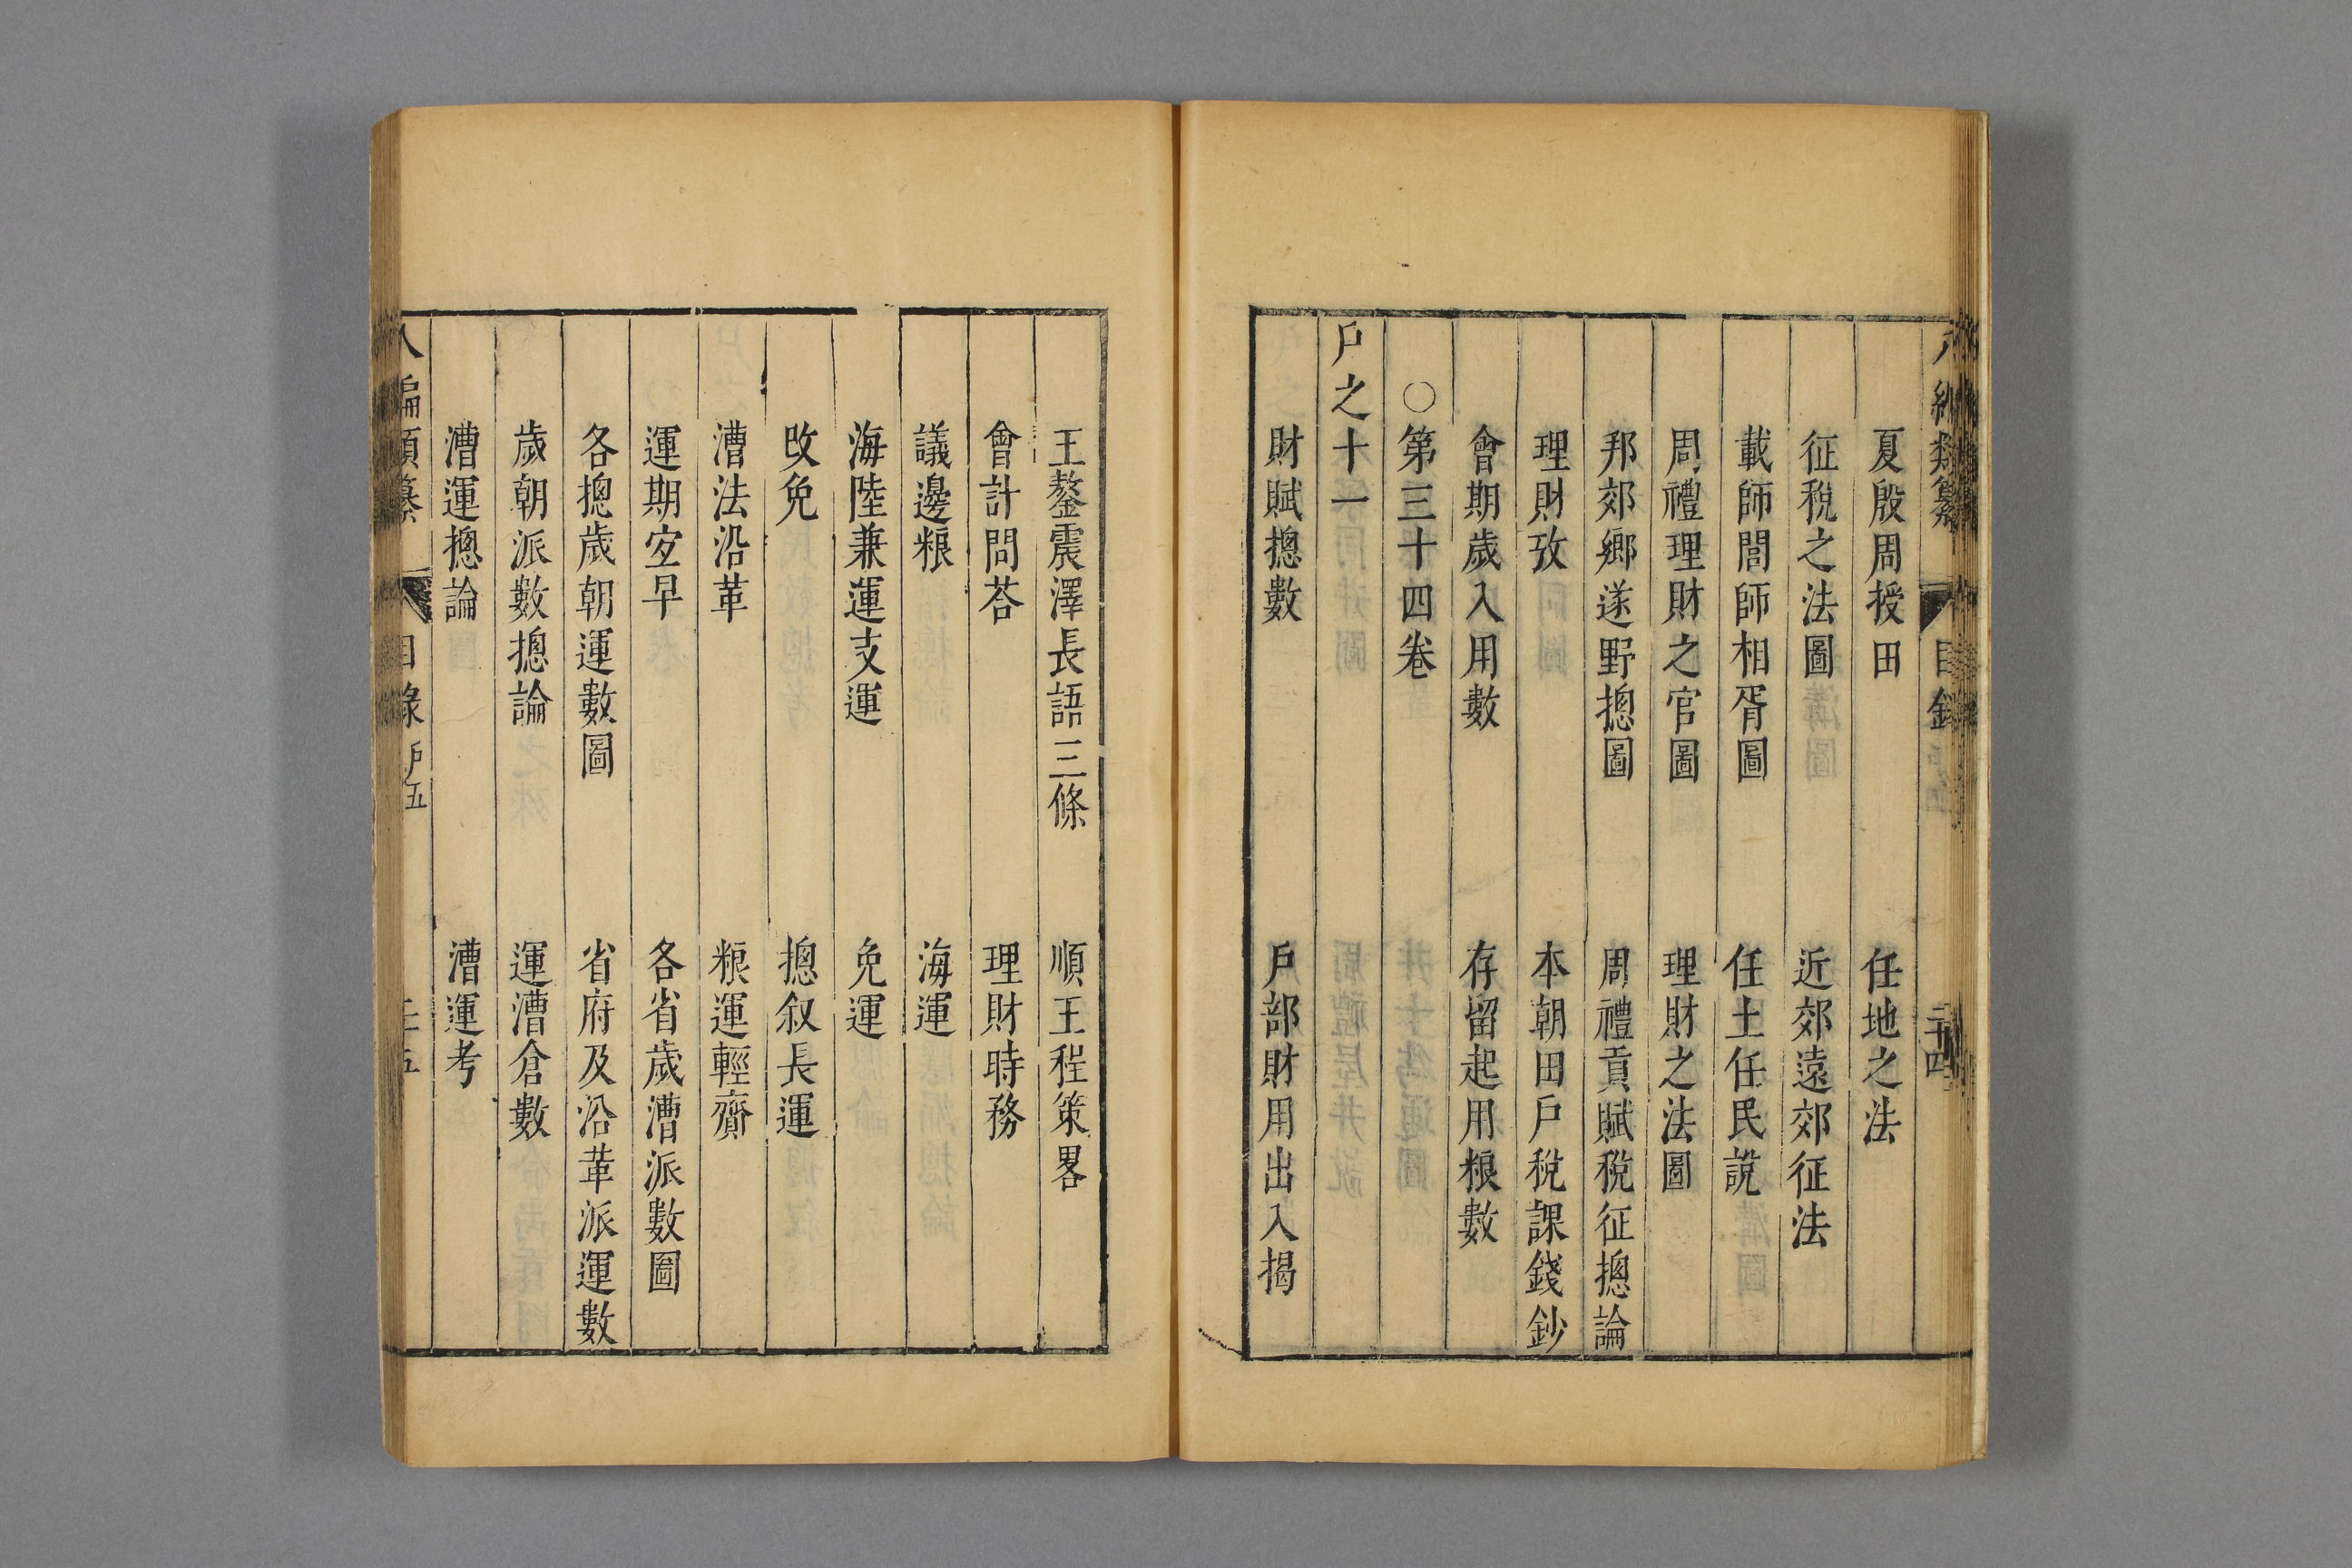 夏殷周授田　任地之法
征稅之法圖　近郊遠郊征法
載師閭師相胥圖　任土任民說
周禮理財之官圖　理財之法圖
邦郊鄉遂野摠圖　周禮貢賦稅征摠論
理財攷　本朝田戶稅課錢鈔
會期歲入用數　存留起用粮數
○第三十四卷
戶之十一
財賦摠數　戶部財用出入揭
王鏊震澤長語三條　順王程策畧
會計問荅　理財時務
議邊粮　海運
海陸兼運支運　免運
改免　摠叙長運
漕法沿革　粮運輕齎
運期定早　各省歲漕派數圖
各摠歲朝運數圖　省府及沿革派運數
歲朝派數摠論　運漕倉數
漕運摠論　漕運考
八編類纂　目錄　戶五